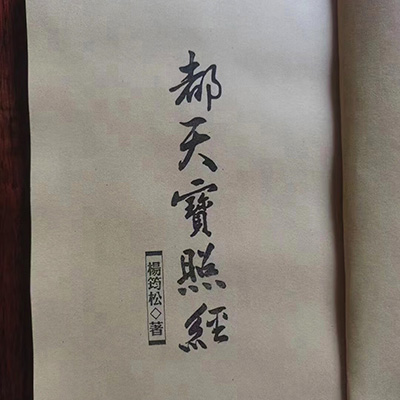 都天寶照經
楊筠松◇著